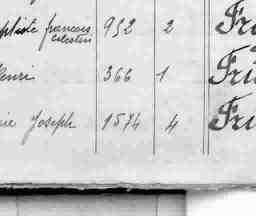 ptiste francois celestin 952 2 Fri
Henri 366 1 Fri
rie Joseph 1574 4 Fri